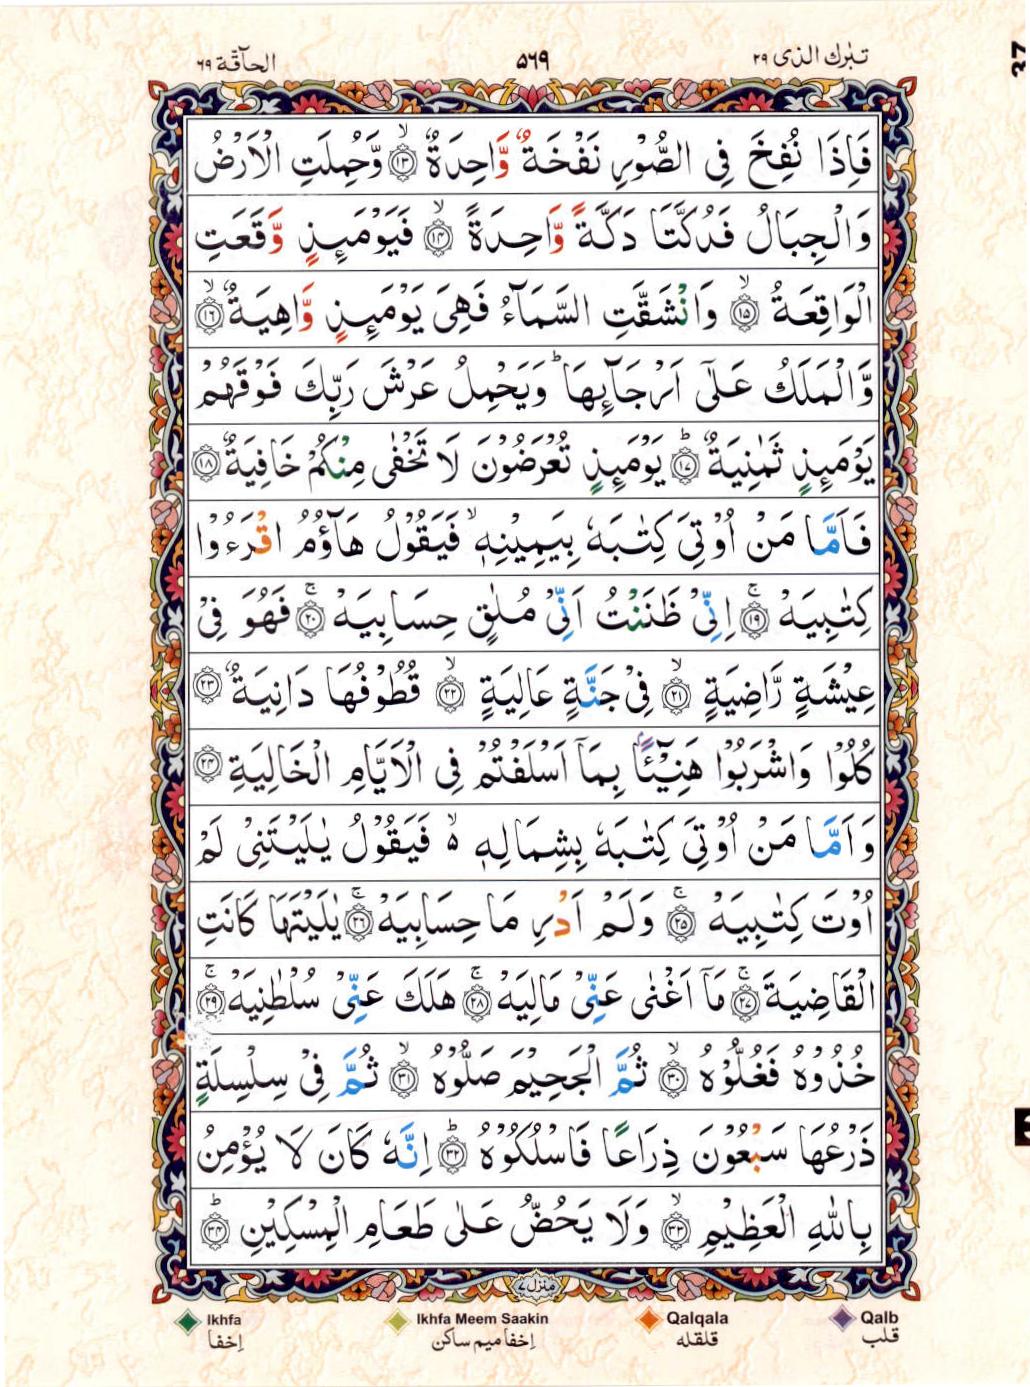 تبٰرك الذى ٢٩
٥٦٩
الحآقّة ٦٩
فَاِذَا نُفِخَ فِى الصُّوْرِ نَفْخَةٌ وَّاحِدَةٌ ۙ‏﴿۱۳﴾ وَّحُمِلَتِ الْاَرْضُ
وَالْجِبَالُ فَدُكَّتَا دَكَّةً وَّاحِدَةً ۙ‏﴿۱۴﴾ فَيَوْمَٮِٕذٍ وَّقَعَتِ
الْوَاقِعَةُ ۙ‏﴿۱۵﴾ وَانْشَقَّتِ السَّمَآءُ فَهِىَ يَوْمَٮِٕذٍ وَّاهِيَةٌ ۙ‏﴿۱۶﴾
وَّالْمَلَكُ عَلٰٓى اَرْجَآٮِٕهَا ؕ وَيَحْمِلُ عَرْشَ رَبِّكَ فَوْقَهُمْ
يَوْمَٮِٕذٍ ثَمٰنِيَةٌ ؕ‏﴿۱۷﴾ يَوْمَٮِٕذٍ تُعْرَضُوْنَ لَا تَخْفٰى مِنْكُمْ خَافِيَةٌ‏﴿۱۸﴾
فَاَمَّا مَنْ اُوْتِىَ كِتٰبَهٗ بِيَمِيْنِهٖ ۙ فَيَقُوْلُ هَآؤُمُ اقْرَءُوْا
كِتٰبِيَهْ ۚ‏﴿۱۹﴾ اِنِّىْ ظَنَنْتُ اَنِّىْ مُلٰقٍ حِسَابِيَهْ ۚ‏﴿۲۰﴾ فَهُوَ فِىْ
عِيْشَةٍ رَّاضِيَةٍ ۙ‏﴿۲۱﴾ فِىْ جَنَّةٍ عَالِيَةٍ ۙ‏﴿۲۲﴾ قُطُوْفُهَا دَانِيَةٌ‏﴿۲۳﴾
كُلُوْا وَاشْرَبُوْا هَنِيْٓئًا ۢ بِمَاۤ اَسْلَفْتُمْ فِى الْاَيَّامِ الْخَالِيَةِ‏﴿۲۴﴾
وَاَمَّا مَنْ اُوْتِىَ كِتٰبَهٗ بِشِمَالِهٖ ۙ۬ فَيَقُوْلُ يٰلَيْتَنِىْ لَمْ
اُوْتَ كِتٰبِيَهْ ۚ‏﴿۲۵﴾ وَلَمْ اَدْرِ مَا حِسَابِيَهْ ۚ‏﴿۲۶﴾ يٰلَيْتَهَا كَانَتِ
الْقَاضِيَةَ ۚ‏﴿۲۷﴾ مَاۤ اَغْنٰى عَنِّىْ مَالِيَهْ ۚ‏﴿۲۸﴾ هَلَكَ عَنِّىْ سُلْطٰنِيَهْ ۚ‏﴿۲۹﴾
خُذُوْهُ فَغُلُّوْهُ ۙ‏﴿۳۰﴾ ثُمَّ الْجَحِيْمَ صَلُّوْهُ ۙ‏﴿۳۱﴾ ثُمَّ فِىْ سِلْسِلَةٍ
ذَرْعُهَا سَبْعُوْنَ ذِرَاعًا فَاسْلُكُوْهُ ؕ‏﴿۳۲﴾ اِنَّهٗ كَانَ لَا يُؤْمِنُ
بِاللّٰهِ الْعَظِيْمِ ۙ‏﴿۳۳﴾ وَلَا يَحُضُّ عَلٰى طَعَامِ الْمِسْكِيْنِ ؕ‏﴿۳۴﴾
منزل ٧
Ikhfa Ikhfa Meem Saakin Qalqala Qalb
اِخفا اِخفا میم ساکن قلقله قلب